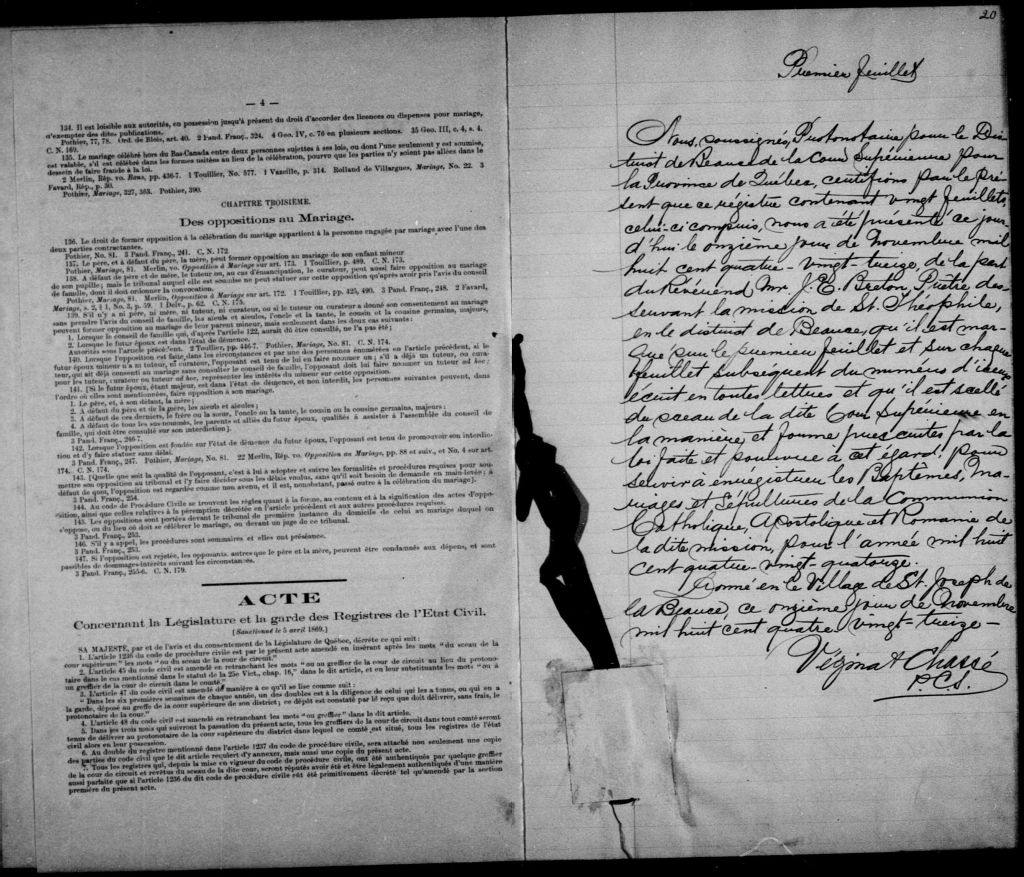 — 4 —
134. Il est loisible aux autorités, en possession jusqu'à présent du droit d'accorder des licences ou dispenses pour mariage,
d'exempter des dites publications.
Pothier, 77, 78. Ord. de Blois, art. 40. 2 Pand. Franç., 324. 4 Geo. IV, c. 76 en plusieurs sections. 35 Geo. III, c. 4, s. 4.
C. N. 169.
135. Le mariage célébré hors du Bas-Canada entre deux personnes sujettes à ses lois, ou dont l'une seulement y est soumise,
est valable, s'il est célébré dans les formes usitées au lieu de la célébration, pourvu que les parties n'y soient pas allées dans le
dessein de faire fraude à la loi.
2 Merlin, Rép. vo. Bans, pp. 436-7. 1 Touillier, No. 577. 1 Vazeille, p. 314. Rolland de Villargues, Mariage, No. 22. 3
Favard, Rép., p. 30.
Pothier, Mariage, 327, 363. Pothier, 390.
CHAPITRE TROISIÈME.
Des oppositions au Mariage.
136. Le droit de former opposition à la célébration du mariage appartient à la personne engagée par mariage avec l'une des
deux parties contractantes.
Pothier, No. 81. 3 Pand. Franç., 241. C. N. 172
137. Le père, et à défaut du père, la mère, peut former opposition au mariage de son enfant mineur
Pothier, Mariage, 81. Merlin, vo. Opposition à Mariage sur art. 173. 1 Touillier, p. 489. C. N. 173.
138. A défaut de père et de mère, le tuteur ou, au cas d'émancipation, le curateur, peut aussi faire opposition au mariage
de son pupille; mais le tribunal auquel elle est soumise ne peut statuer sur cette opposition qu'après avoir pris l'avis du conseil
de famille, dont il doit ordonner la convocation.
Pothier, Mariage, 81. Merlin, Opposition à Mariage sur art. 172. 1 Touillier, pp. 425, 490. 3 Pand. Franç., 248. 2 Favard,
Mariage, s. 2, § 1, No. 3, p. 59. 1 Delv., p. 62. C. N. 175.
139. S'il n'y a ni père, ni mère, ni tuteur, ni curateur, ou si le tuteur ou curateur a donné son consentement au mariage
sans prendre l'avis du conseil de famille, les aïeuls et aïeules, l'oncle et la tante, le cousin et la cousine germains, majeurs,
peuvent former opposition au mariage de leur parent mineur, mais seulement dans les deux cas suivants:
1. Lorsque le conseil de famille qui, d'après l'article 122, aurait dû être consulté, ne l'a pas été;
2. Lorsque le futur époux est dans l'état de démence.
Autorités sous l'article précédent. 2 Touillier, pp. 446-7. Pothier, Mariage, No. 81. C. N. 174.
140. Lorsque l'opposition est faite dans les circonstances et par une des personnes énumérées en l'article précédent, si le
futur époux mineur n'a ni tuteur, ni curateur, l'opposant est tenu de lui en faire nommer un; s'il a déjà un tuteur, ou cura-
teur, qui ait déjà consenti au mariage sans consulter le conseil de famille, l'opposant doit lui faire nommer un tuteur ad hoc;
pour les tuteur, curateur ou tuteur ad hoc, représenter les intérêts du mineur sur cette opposition.
141. [Si le futur époux, étant majeur, est dans l'état de démence, et non interdit, les personnes suivantes peuvent, dans
l'ordre où elles sont mentionnées, faire opposition à son mariage.
1. Le père, et, à son défaut, la mère;
2. A défaut du père et de la mère, les aïeuls et aïeules;
3. A défaut de ces derniers, le frère ou la sœur, l'oncle ou la tante, le cousin ou la cousine germains, majeurs;
4. A défaut de tous les sus-nommés, les parents et alliés du futur époux, qualifiés à assister à l'assemblée du conseil de
famille, qui doit être consulté sur son interdiction].
3 Pand. Franç., 246-7.
142. Lorsque l'opposition est fondée sur l'état de démence du futur époux, l'opposant est tenu de promouvoir son interdic-
tion et d'y faire statuer sans délai.
3 Pand. Franç., 247. Pothier, Mariage, No. 81. 22 Merlin, Rép. vo. Opposition au Mariage, pp. 88 et suiv., et No. 4 sur art.
174. C. N. 174.
143. [Quelle que soit la qualité de l'opposant, c'est à lui à adopter et suivre les formalités et procédures requises pour sou-
mettre son opposition au tribunal et l'y faire décider sous les délais voulus, sans qu'il soit besoin de demande en main-levée; à
défaut de quoi, l'opposition est regardée comme non avenu, et il est, nonobstant, passé outre à la célébration du mariage].
3 Pand. Franç., 254.
144. Au code de Procédure Civile se trouvent les règles quant à la forme, au contenu et à la signification des actes d'oppo-
sition, ainsi que celles relatives à la péremption décrétée en l'article précédent et aux autres procédures requises.
145. Les oppositions sont portées devant le tribunal de première instance du domicile de celui au mariage duquel on
s'oppose, ou du lieu où doit se célébrer le mariage, ou devant un juge de ce tribunal.
3 Pand. Franç., 253.
146. S'il y a appel, les procédures sont sommaires et elles ont préséance.
3 Pand. Franç., 253.
147. Si l'opposition est rejetée, les opposants, autres que le père et la mère, peuvent être condamnés aux dépens, et sont
passibles de dommages-intérêts suivant les circonstances.
3 Pand. Franç., 255-6. C. N. 179.
ACTE
Concernant la Législature et la garde des Registres de l'Etat Civil.
(Sanctionné le 5 avril 1869.)
SA MAJESTÉ, par et de l'avis et du consentement de la Législature de Québec, décrète ce qui suit:
1. L'article 1236 du code de procédure civile est par le présent acte amendé en insérant après les mots "du sceau de la
cour supérieure" les mots "ou du sceau de la cour de circuit."
2. L'article 45 du code civil est amendé en retranchant les mots "on au greffier de la cour de circuit au lieu du protono-
taire dans le cas mentionné dans le statut de la 25e Vict., chap. 16," dans le dit article, et en leur substituant les mots "ou à
un greffier de la cour de circuit dans le comté."
3. L'article 47 du code civil est amendé de manière à ce qu'il se lise comme suit:
"Dans les six premières semaines de chaque année, un des doubles est à la diligence de celui qui les a tenus, ou qui en a
la garde, déposé au greffe de la cour supérieure de son district; ce dépôt est constaté par le reçu que doit délivrer, sans frais, le
protonotaire de la cour."
4. L'article 48 du code civil est amendé en retranchant les mots "ou greffier" dans le dit article.
5. Dans les trois mois qui suivront la passation du présent acte, tous les greffiers de la cour de circuit dans tout comté seront
tenus de délivrer au protonotaire de la cour supérieure du district dans lequel ce comté est situé, tous les registres de l'état
civil alors en leur possession.
6. Au double du registre mentionné dans l'article 1237 du code de procédure civile, sera attaché non seulement une copie
des parties du code civil que le dit article requiert d'y annexer, mais aussi une copie du présent acte.
7. Tous les registres qui, depuis la mise en vigueur du code de procédure civile, ont été authentiqués par quelque greffier
de la cour de circuit et revêtus du sceau de la dite cour, seront réputés avoir été et être légalement authentiqués d'une manière
aussi parfaite que si l'article 1236 du dit code de procédure civile eût été primitivement décrété tel qu'amendé par la section
première du présent acte.
20
Premier feuillet
Nous, soussignés, Protonotaire pour le Dis
trict de Beauce de la Cour Supérieure pour
la Province de Québec, certifions par le pré-
sent que ce régistre contenant vingt feuillets,
celui-ci compris, nous a été présenté ce jour
d'hui le onzième jour de Novembre mil
huit cent quatre-vingt-treize, de la part
du Révérend Mr J. E. Breton, Prêtre des-
servant la mission de St. Théophile,
en le district de Beauce, qu'il est mar-
qué sur le premier feuillet et sur chaque
feuillet subséquent du numéro d'iceux
écrit en toutes lettres et qu'il est scellé
du sceau de la dite Cour Supérieure en
la manière et forme prescrites par la
loi faite et pourvue à cet égard, pour
servir à enrégistrer les Baptêmes, Ma-
riages et Sépultures de la Communion
Catholique, Apostolique et Romaine de
la dite mission, pour l'année mil huit
cent quatre-vingt-quatorze.
Donné en le Village de St. Joseph de
la Beauce ce onzième jour de Novembre
mil huit cent quatre-vingt-treize—
Vézina & Chassé
P.C.S.